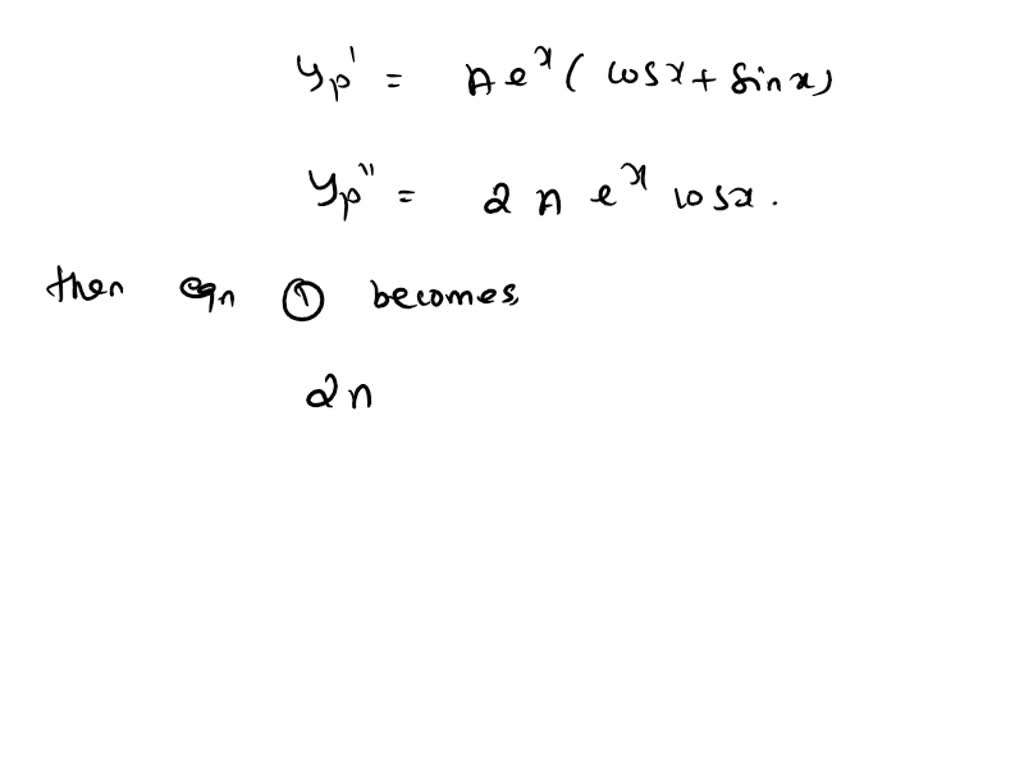 yp' = A e^x ( cosx + sinx)
yp" = 2 A e^x cosx.
then eqn ① becomes,
2A